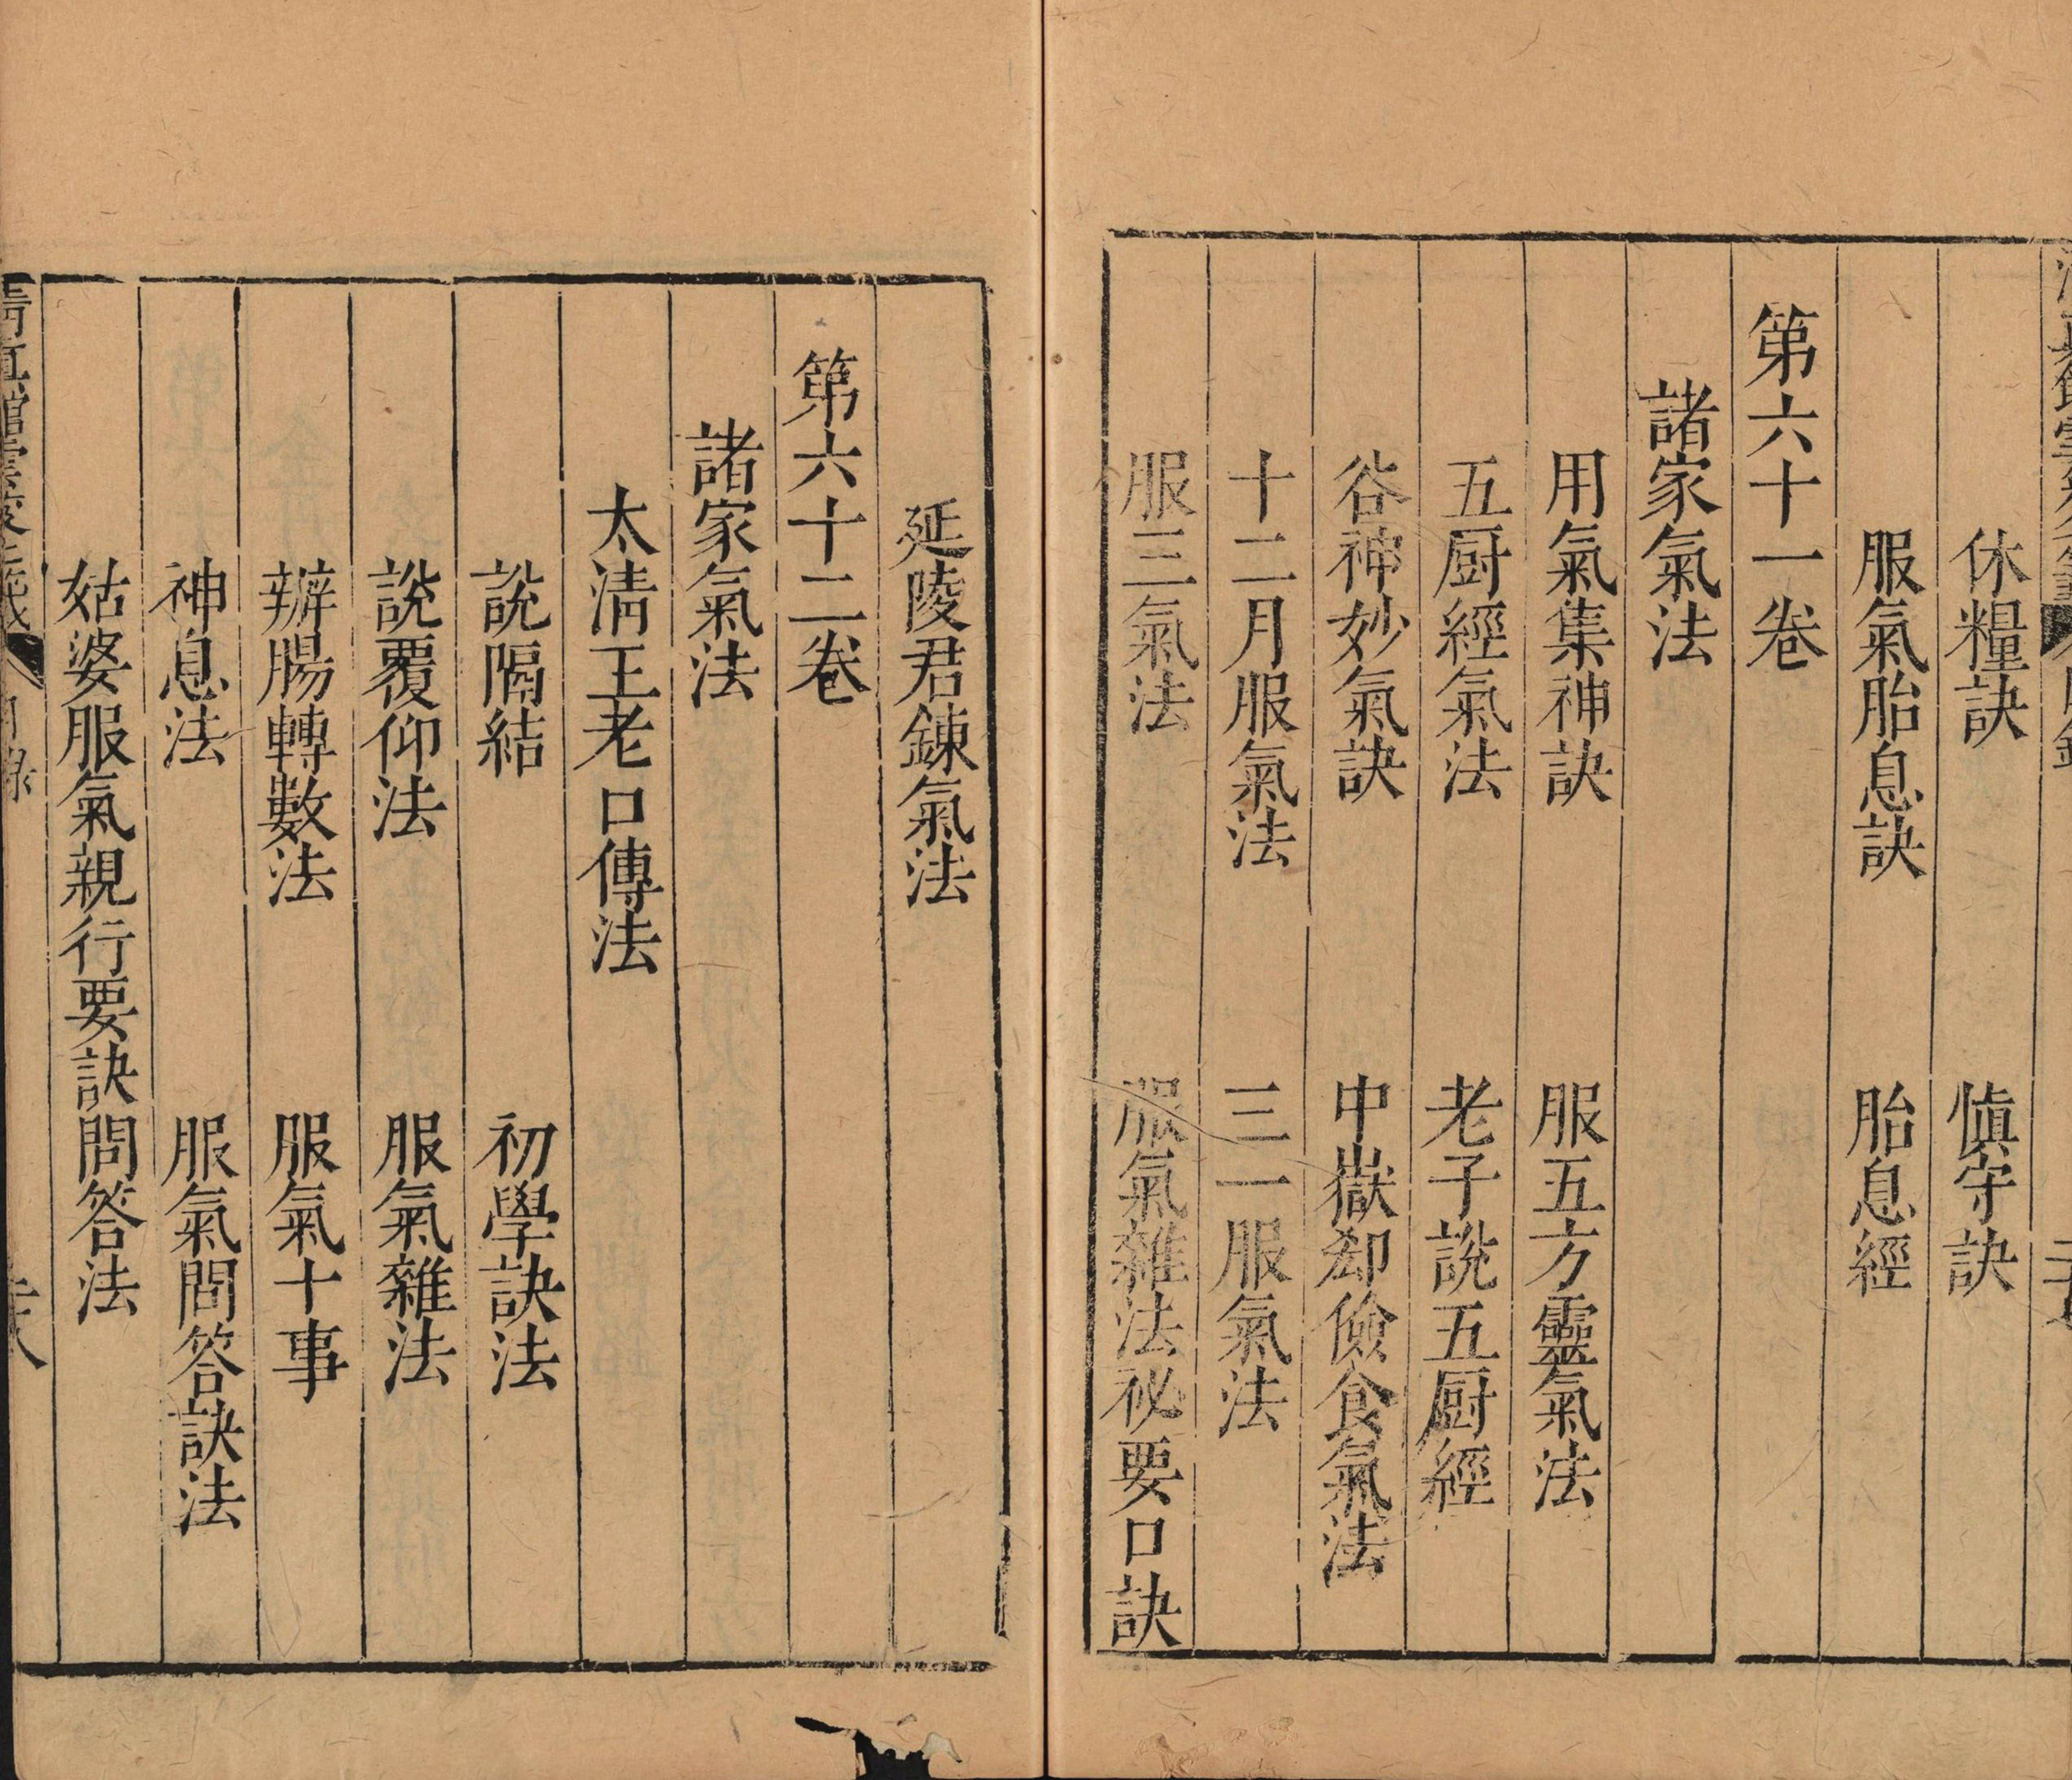 休糧訣　愼守訣
服氣胎息訣　胎息經
第六十一卷
諸家氣法
用氣集神訣　服五方靈氣法
五厨經氣法　老子說五厨經
谷神妙氣訣　中嶽郄儉食氣法
十二月服氣法　三一服氣法
服三氣法　服氣雜法祕要口訣
延陵君鍊氣法
第六十二卷
諸家氣法
太清王老口傳法
說隔結　初學訣法
說覆仰法　服氣雜法
辧腸轉數法　服氣十事
神息法　服氣問答訣法
姑婆服氣親行要訣問答法